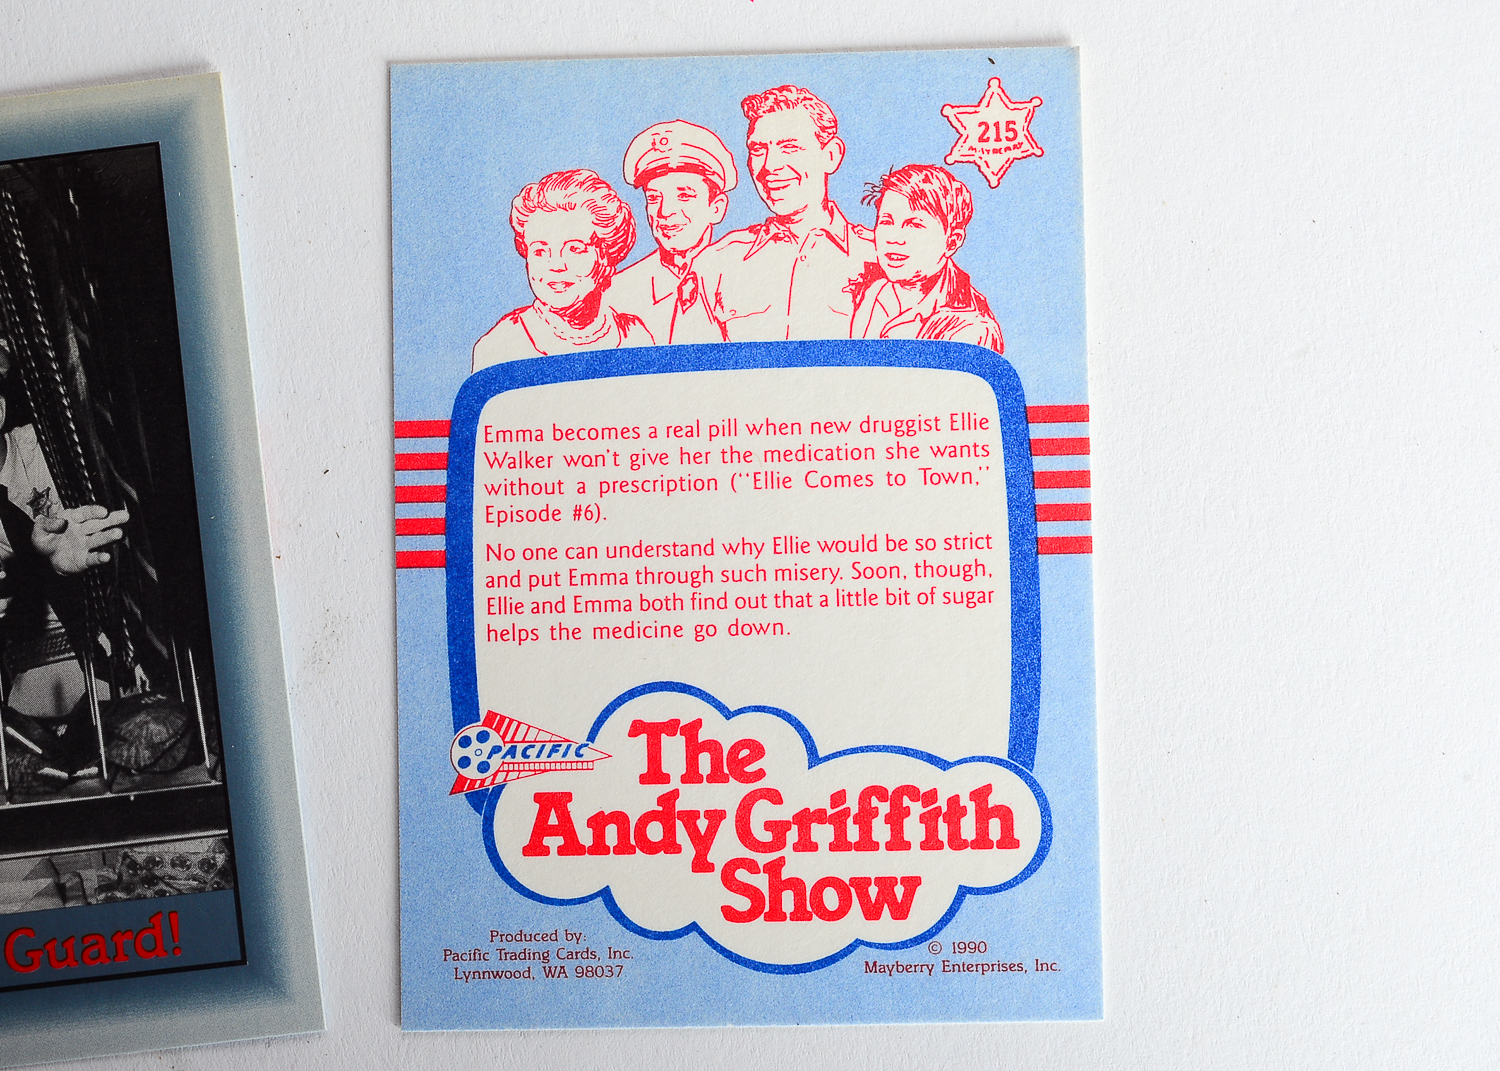 215
MAYBERRY
Emma becomes a real pill when new druggist Ellie
Walker won't give her the medication she wants
without a prescription ("Ellie Comes to Town,"
Episode #6).
No one can understand why Ellie would be so strict
and put Emma through such misery. Soon, though,
Ellie and Emma both find out that a little bit of sugar
helps the medicine go down.
PACIFIC
The
Andy Griffith
Show
Produced by:
Pacific Trading Cards, Inc.
Lynnwood, WA 98037
© 1990
Mayberry Enterprises, Inc.
Guard!